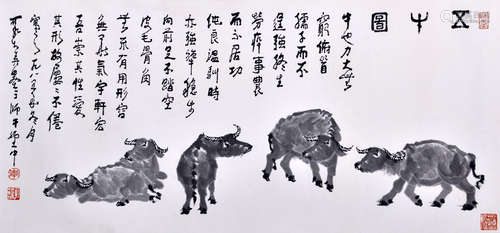 五牛圖
牛也力大無
窮俯首
孺子而不
逞強終生
勞瘁事農
而不居功
純良溫馴時
亦強犟穩步
向前足不踏空
皮毛骨角
無不有用形容
無華氣宇軒宏
吾崇其性愛
其形故屢屢不倦
寫之一九八
可染師牛堂中